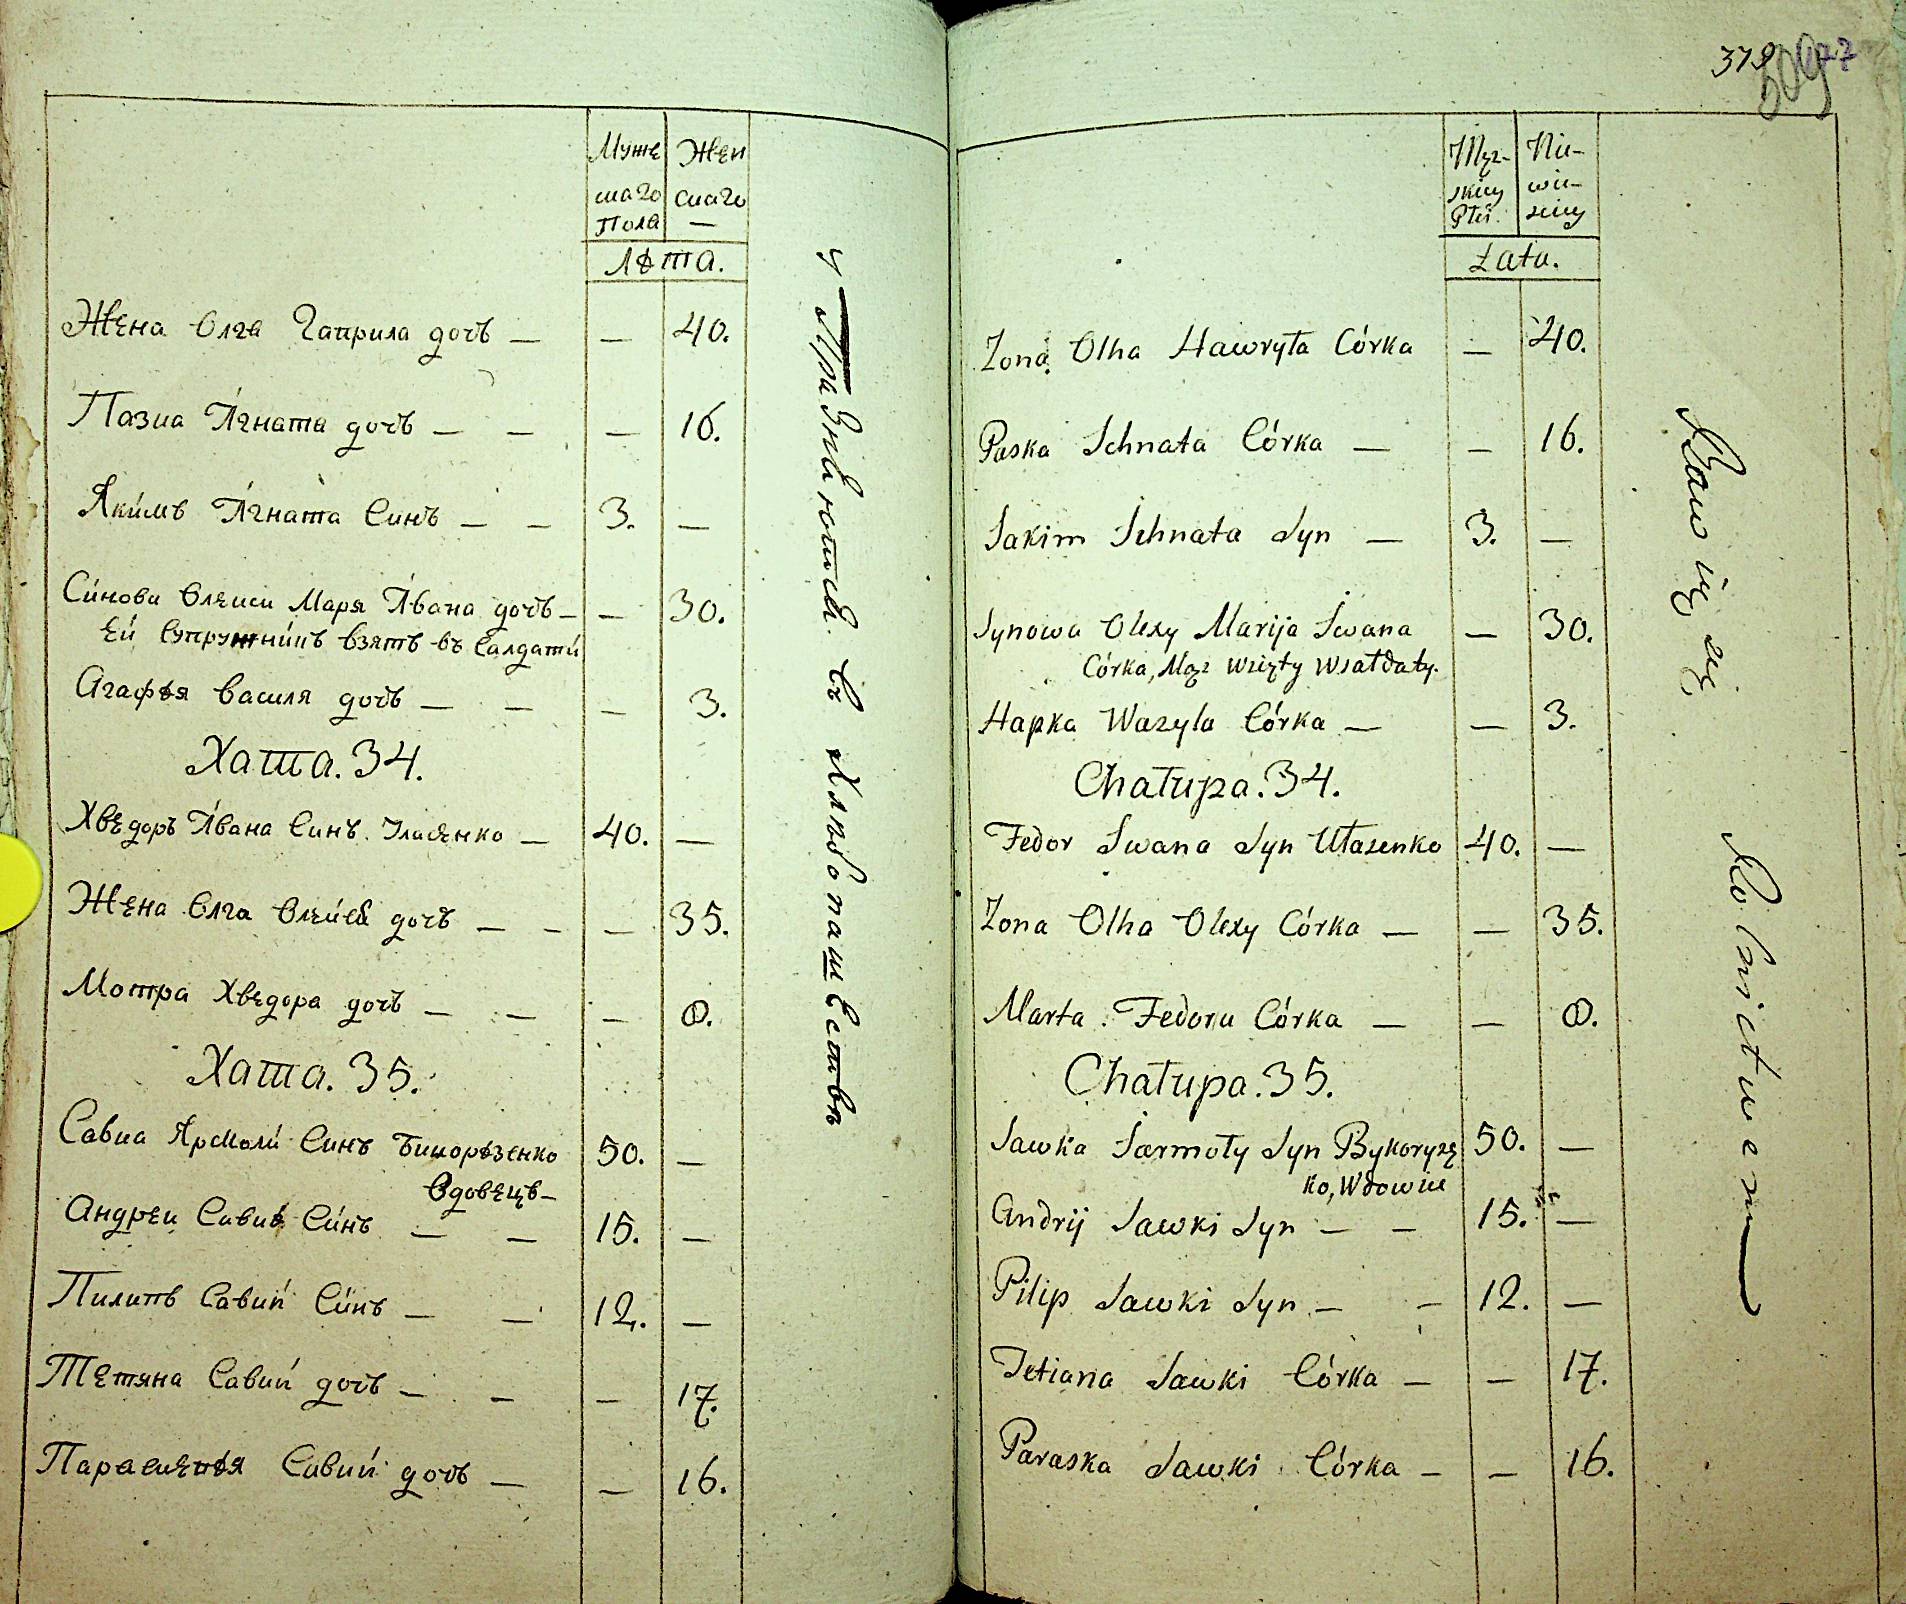 Муже
скаго
Пола
Жен
скаго
—
Лѣта.
Жена Олга Гаврила дочъ — — 40.
Пазка Ігната дочъ — — — 16.
Якимъ Ігната Синъ — — 3. —
Синова Олекси Маря Івана дочъ — — 30.
Ей Супружникъ взятъ въ Салдати
Агафѣя Василя дочъ — — — 3.
Хата. 34.
Хведоръ Івана Синъ Уласенко — 40. —
Жена Олга Олексѣя дочъ — — — 35.
Мотра Хведора дочъ — — — 0.
Хата. 35.
Савка Ярмоли Синъ Бикорѣзенко 50. —
Вдовецъ —
Андреи Савки Синъ — — 15. —
Пилипъ Савки Синъ — — 12. —
Тетяна Савки дочъ — — — 17.
Параскевѣя Савки дочъ — — 16.
Упражняются въ Хлѣбопашествѣ
379
509
77
Męz-
skiey
Płci.
Nie-
wie-
sciey
Lata.
Zona Olha Hawryła Córka — 40.
Paska Jchnata Córka — — 16.
Jakim Jchnata Syn — 3. —
Synowa Olexy Marija Jwana — 30.
Córka, Mąz wzięty wsałdaty.
Hapka Wazyla Córka — — 3.
Chałupa. 34.
Fedor Jwana Syn Ułasenko 40. —
Zona Olha Olexy Córka — — 35.
Marta Fedora Córka — — 0.
Chałupa. 35.
Sawka Jarmoły Syn Bykoryzę 50. —
ko, Wdowiec
Andrij Sawki Syn — — 15. —
Pilip Sawki Syn — — 12. —
Tetiana Sawki Córka — — 17.
Paraska Sawki Córka — — 16.
Bawią się Rolnictwem